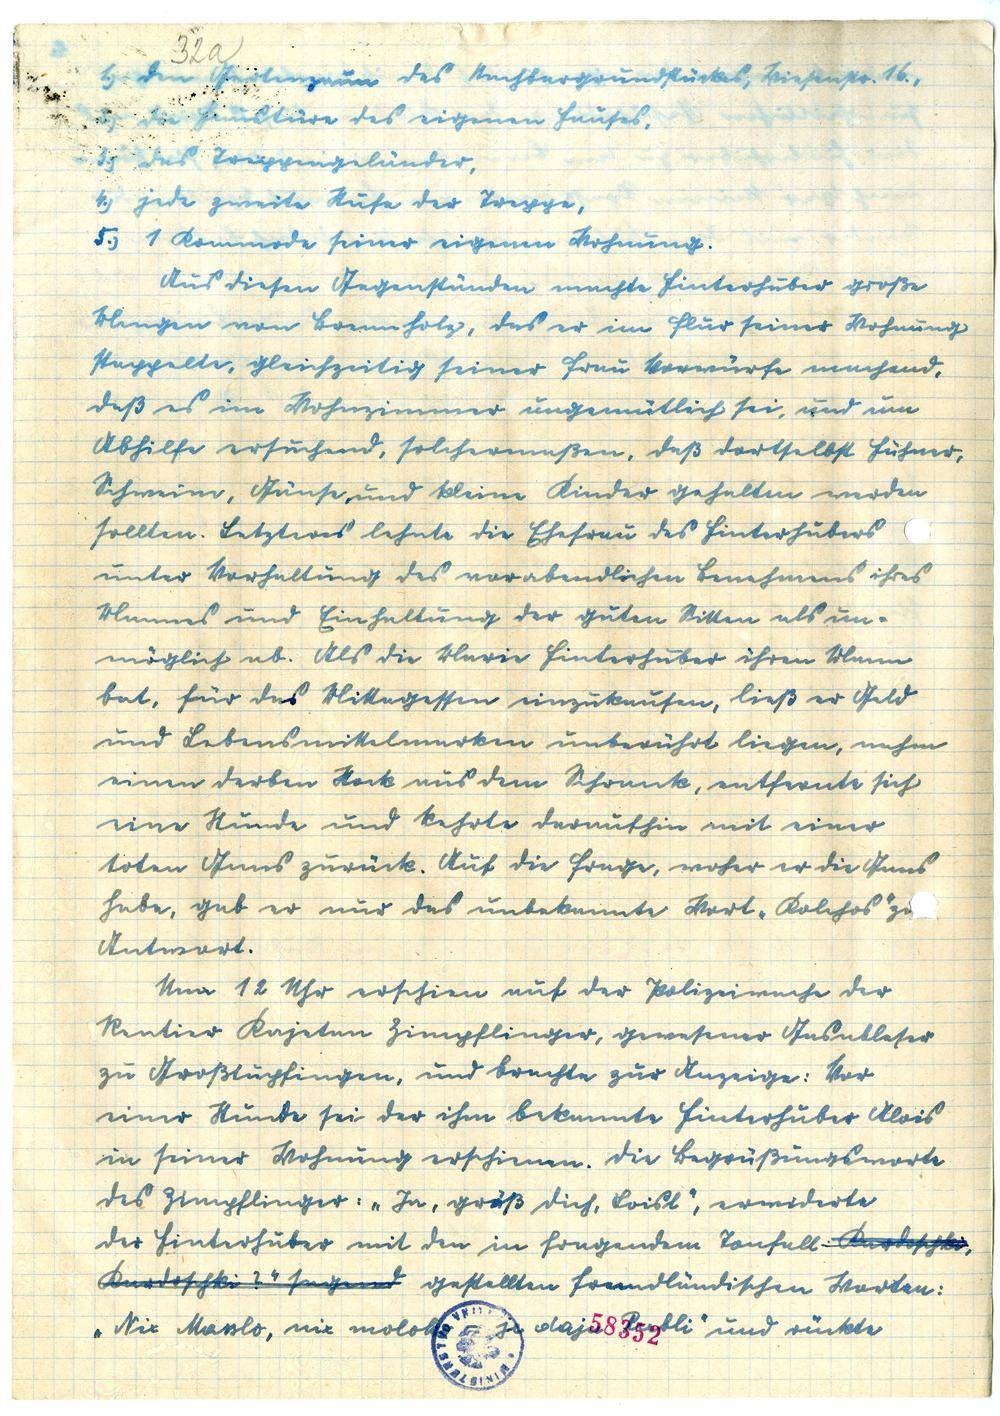 32a
1.) den Gartenzaun des Nachbargrundstückes, Wiesenstr. 16.,
2.) die Haustüre des eigenen Hauses,
3.) das Treppengeländer,
4.) jede zweite Stufe der Treppe,
5.) 1 Kommode seiner eigenen Wohnung.
Aus diesen Gegenständen machte Hinterhuber große
Mengen von Brennholz, das er im Flur seiner Wohnung
stappelte, gleichzeitig seiner Frau Vorwürfe machend,
daß es im Wohnzimmer ungemütlich sei, und um
Abhilfe ersuchend, solchermaßen, daß dortselbst Hühner,
Schweine, Gänse, und kleine Kinder gehalten werden
sollten. Letzteres lehnte die Ehefrau des Hinterhubers
unter Vorhaltung des vorabendlichen Benehmens ihres
Mannes und Einhaltung der guten Sitten als un-
möglich ab. Als die Marie Hinterhuber ihren Mann
bat, für das Mittagessen einzukaufen, ließ er Geld
und Lebensmittelmarken unberührt liegen, nahm
einen derben Stock aus dem Schrank, entfernte sich
eine Stunde und kehrte daraufhin mit einer
toten Gans zurück. Auf die Frage, woher er die Gans
habe, gab er nur das unbekannte Wort „Kolchos" zu
Antwort.
Um 12 Uhr erschien auf der Polizeiwache der
Rentier Kajetan Zimpflinger, gewesener Gasableser
zu Großtupfingen, und brachte zur Anzeige: Vor
einer Stunde sei der ihm bekannte Hinterhuber Alois
in seiner Wohnung erschienen. Die Begrüßungsworte
des Zimpflinger: „Ja, grüß dich, Loisl", erwiderte
der Hinterhuber mit den in fragendem Tonfall Kardoschki,
Kardoschki?" sagend gestellten fremdländischen Worten:
„Nix Masslo, nix molok daj Rubli" und rückte
58352